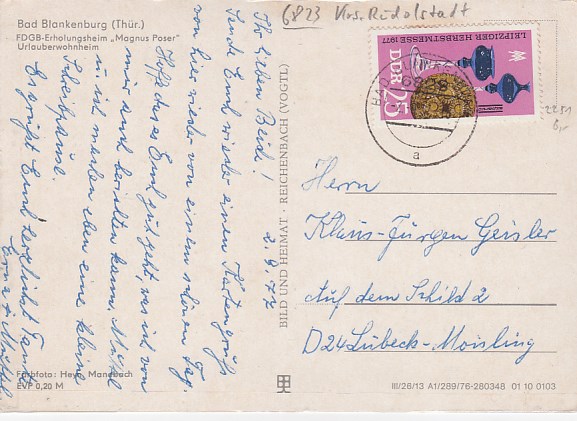 Bad Blankenburg (Thür.)
FDGB-Erholungsheim „Magnus Poser"
Urlauberwohnheim
6823 Krs. Rudolstadt
LEIPZIGER HERBSTMESSE 1977
DDR 25
a
2251
6,-
2.9.77
Ihr lieben Beid!
Sende Euch wieder einen Kartengruß
von hier wieder von einem schönen Tag.
Hoffe dass es Euch gut geht, was ich von
mir auch berichten kann. Muttel
u. ich machen eben eine kleine
Schreibpause.
Es grüßt Euch herzlichst Tante
Erna + Muttel
BILD UND HEIMAT · REICHENBACH (VOGTL)
Herrn
Klaus-Jürgen Geisler
Auf dem Schild 2
D24 Lübeck-Moisling
Farbfoto: Heyo, Manebach
EVP 0,20 M
III/26/13 A1/289/76-280348 01 10 0103